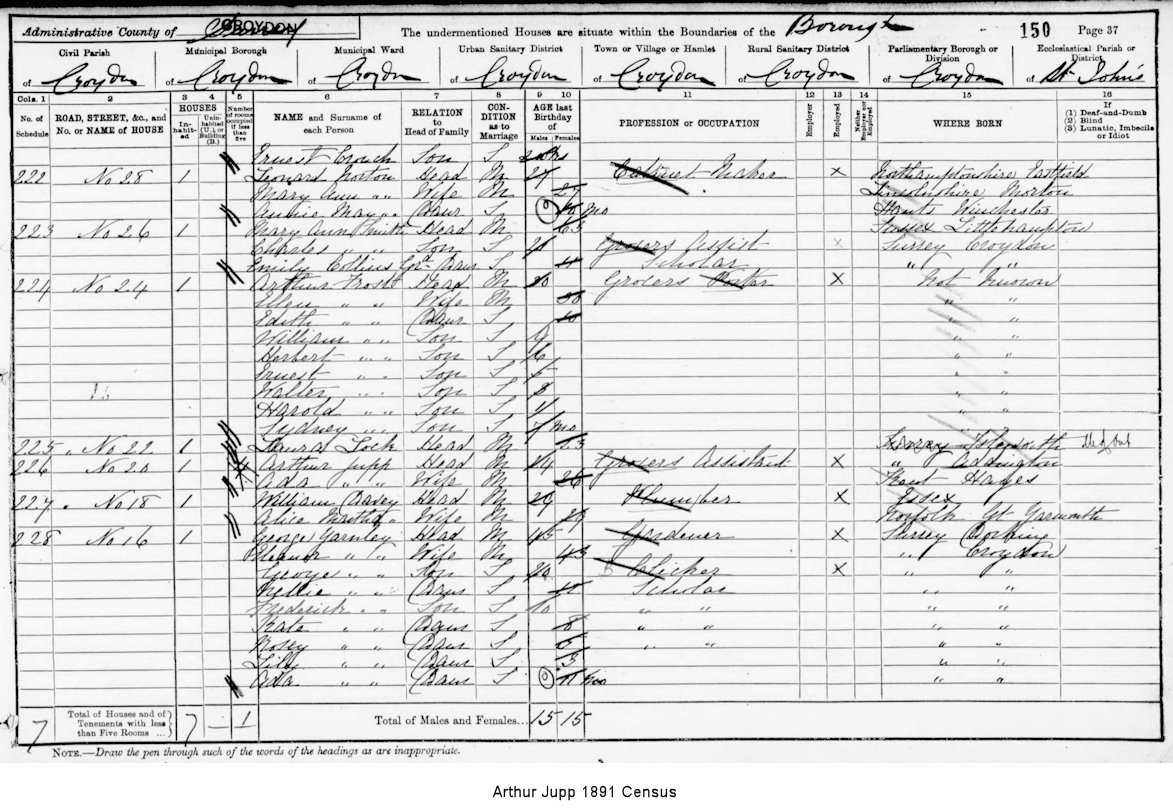 Administrative County of CROYDON The undermentioned Houses are situate within the Boundaries of the Borough 150 Page 37
Civil Parish Municipal Borough Municipal Ward Urban Sanitary District Town or Village or Hamlet Rural Sanitary District Parliamentary Borough or Division Ecclesiastical Parish or District
of Croydon of Croydon of Croydon of Croydon of Croydon of Croydon of Croydon of St John's
Cols. 1 2 3 4 5 6 7 8 9 10 11 12 13 14 15 16
No. of Schedule ROAD, STREET, &c., and No. or NAME of HOUSE HOUSES Inhabited Uninhabited (U.) or Building (B.) Number of rooms occupied if less than five NAME and Surname of each Person RELATION to Head of Family CONDITION as to Marriage AGE last Birthday of Males Females PROFESSION or OCCUPATION Employer Employed Neither Employer nor Employed WHERE BORN If (1) Deaf-and-Dumb (2) Blind (3) Lunatic, Imbecile or Idiot
Ernest Crouch Son S
222 No 28 1 Leonard Norton Head M 27 Cabinet Maker X Northamptonshire Eastfield
Mary Ann " " Wife M 27 Lincolnshire Morton
Annie May " " Daur S mo Hants Winchester
223 No 26 1 Mary Ann Head M 63 Sussex Littlehampton
Charles " " Son S Grocers Assist X Surrey Croydon
Emily Collins Gd Daur S 11 Scholar " "
224 No 24 1 Arthur Frost Head M 30 Grocers Porter X Not Known
Ellen " " Wife M 30 " "
Edith " " Daur S 10 " "
William " " Son S 9 " "
Herbert " " Son S 6 " "
Ernest " " Son S 5 " "
Walter " " Son S " "
Harold " " Son S " "
Sydney " " Son S mo
225 " No 22 1 Laura Lock Head M 23 Surrey
226 " No 20 1 Arthur Jupp Head M 24 Grocers Assistant X " Addington
Ada " " Wife M 26 Kent Hayes
227 " No 18 1 William Davey Head M 29 Plumber X Essex
Alice Martha " Wife M 29 Norfolk Gt Yarmouth
228 No 16 1 George Yarnley Head M 45 Gardener X Surrey Dorking
Eleanor " " Wife M 43 " Croydon
George " " Son S 20 Clicker X " "
Nellie " " Daur S 11 Scholar " "
Frederick " " Son S 10 " " " "
Kate " " Daur S 8 " " " "
Rosey " " Daur S 5 " " " "
Lily " " Daur S 3 " "
Ada " " Daur S 11 mo " "
7 Total of Houses and of Tenements with less than Five Rooms ... 7 — 1 Total of Males and Females... 15 15
NOTE.—Draw the pen through such of the words of the headings as are inappropriate.
Arthur Jupp 1891 Census